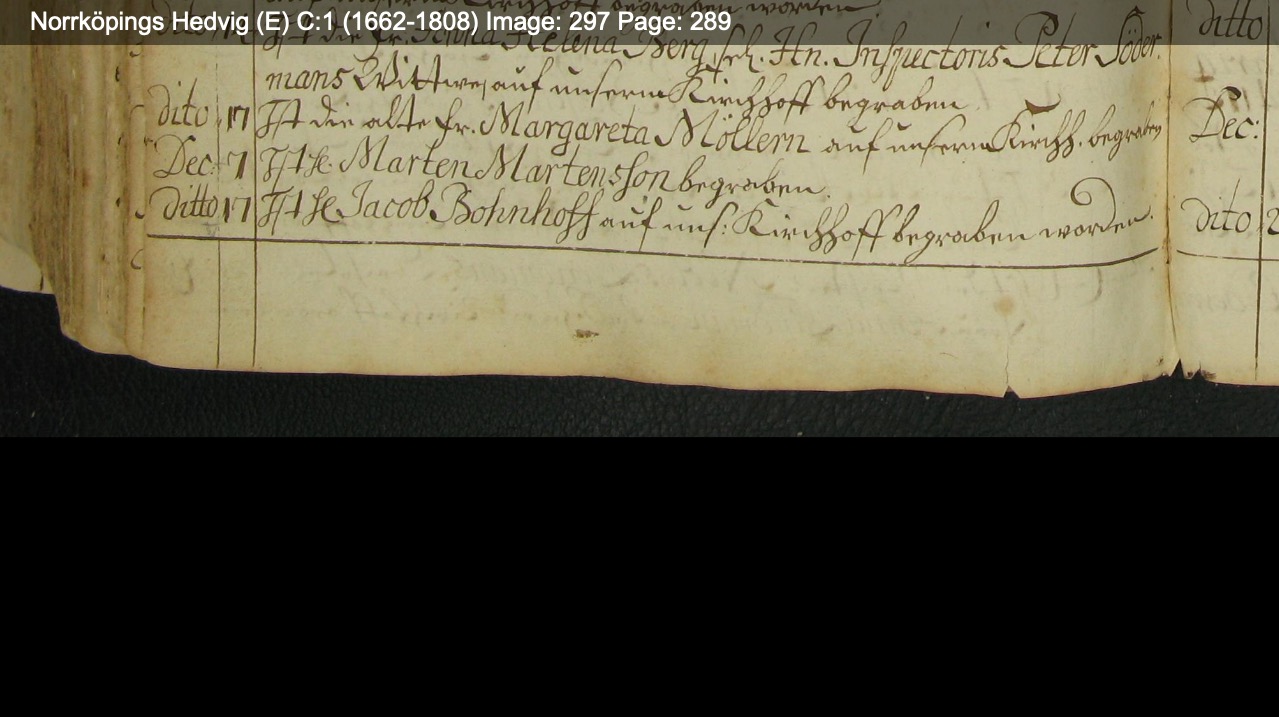 Norrköpings Hedvig (E) C:1 (1662-1808) Image: 297 Page: 289
begraben worden
Ist die Fr. Helena Berg, sel. Hn. Inspectoris Peter Söder
mans Wittwe, auf unserm Kirchhoff begraben
dito 17 Ist die alte Fr. Margareta Möllern auf unserm Kirchh. begraben
Dec: 7 Ist Marten Martensson begraben.
ditto 17 Ist Jacob Bohnhoff auf uns: Kirchhoff begraben worden.
ditto
Dec:
dito 2